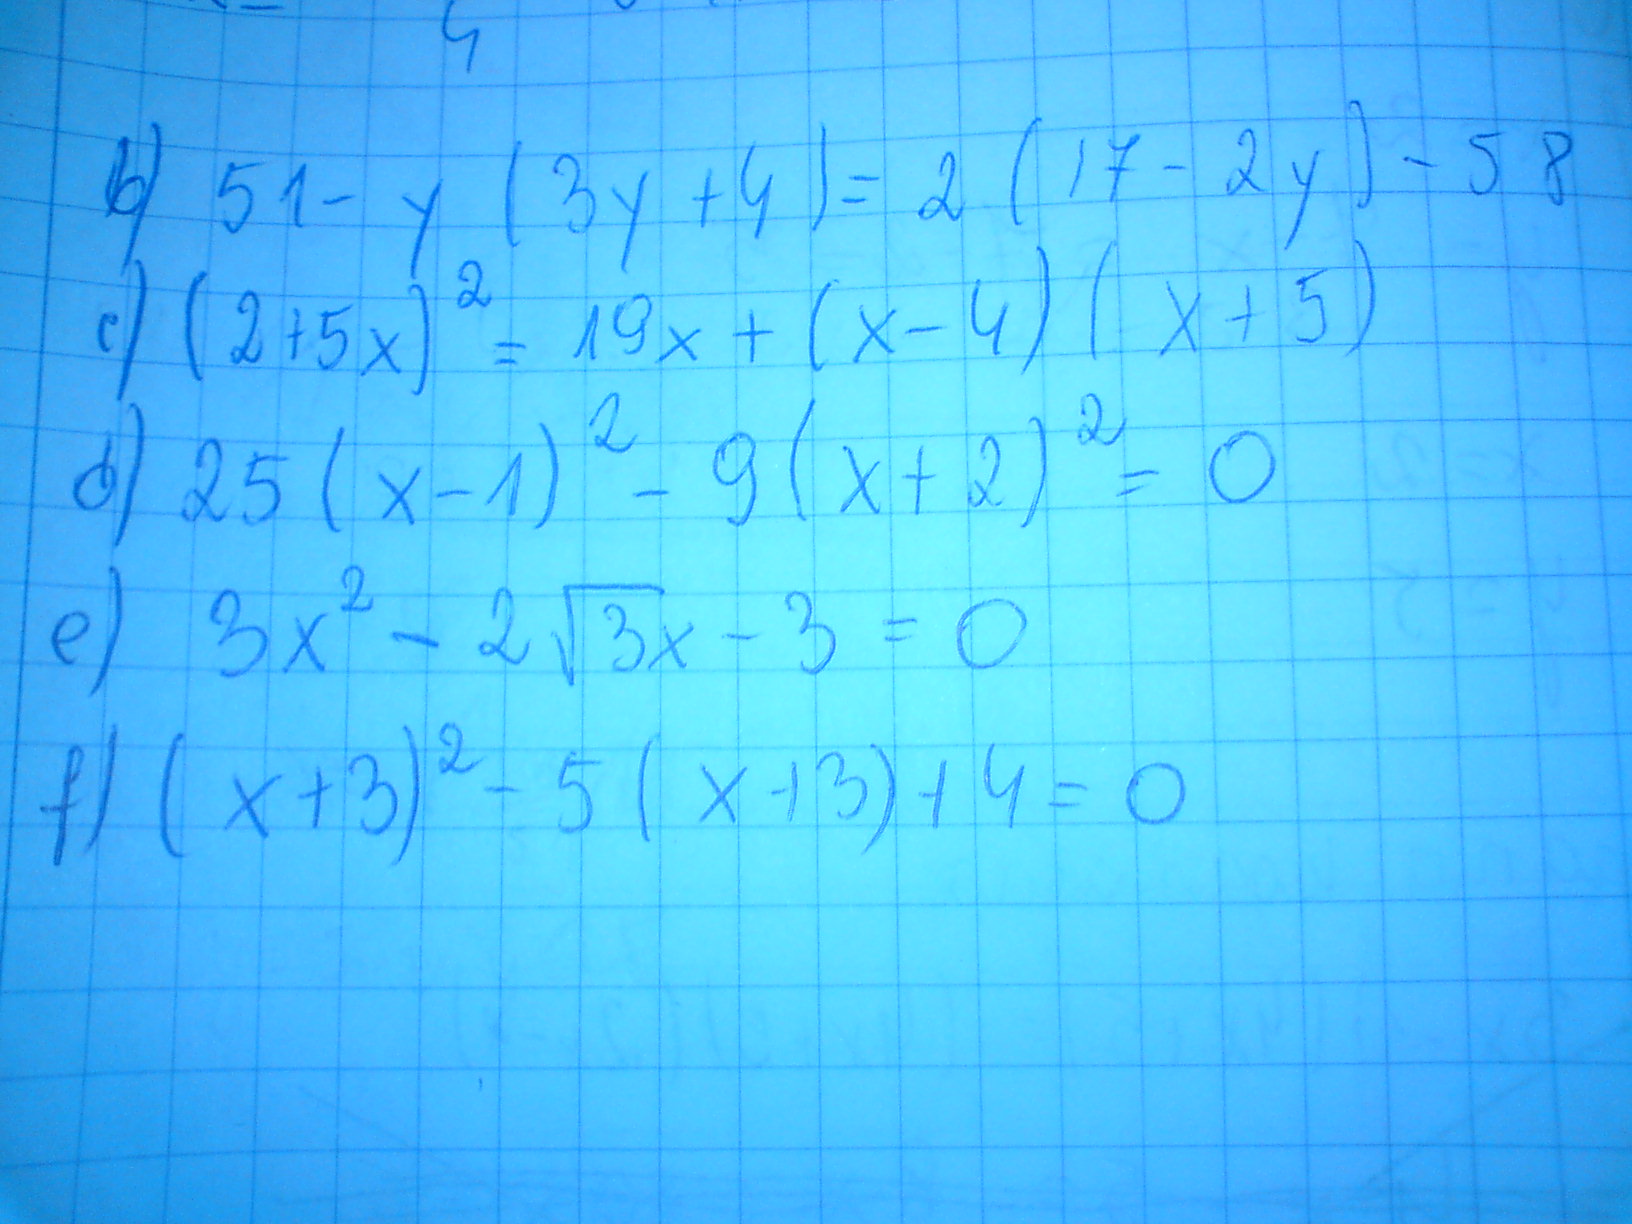 4
b) 51 - y (3y + 4) = 2 (17 - 2y) - 58
c) (2+5x)² = 19x + (x - 4) (x + 5)
d) 25 (x - 1)² - 9 (x + 2)² = 0
e) 3x² - 2√3x - 3 = 0
f) (x+3)² - 5 (x+3) + 4 = 0